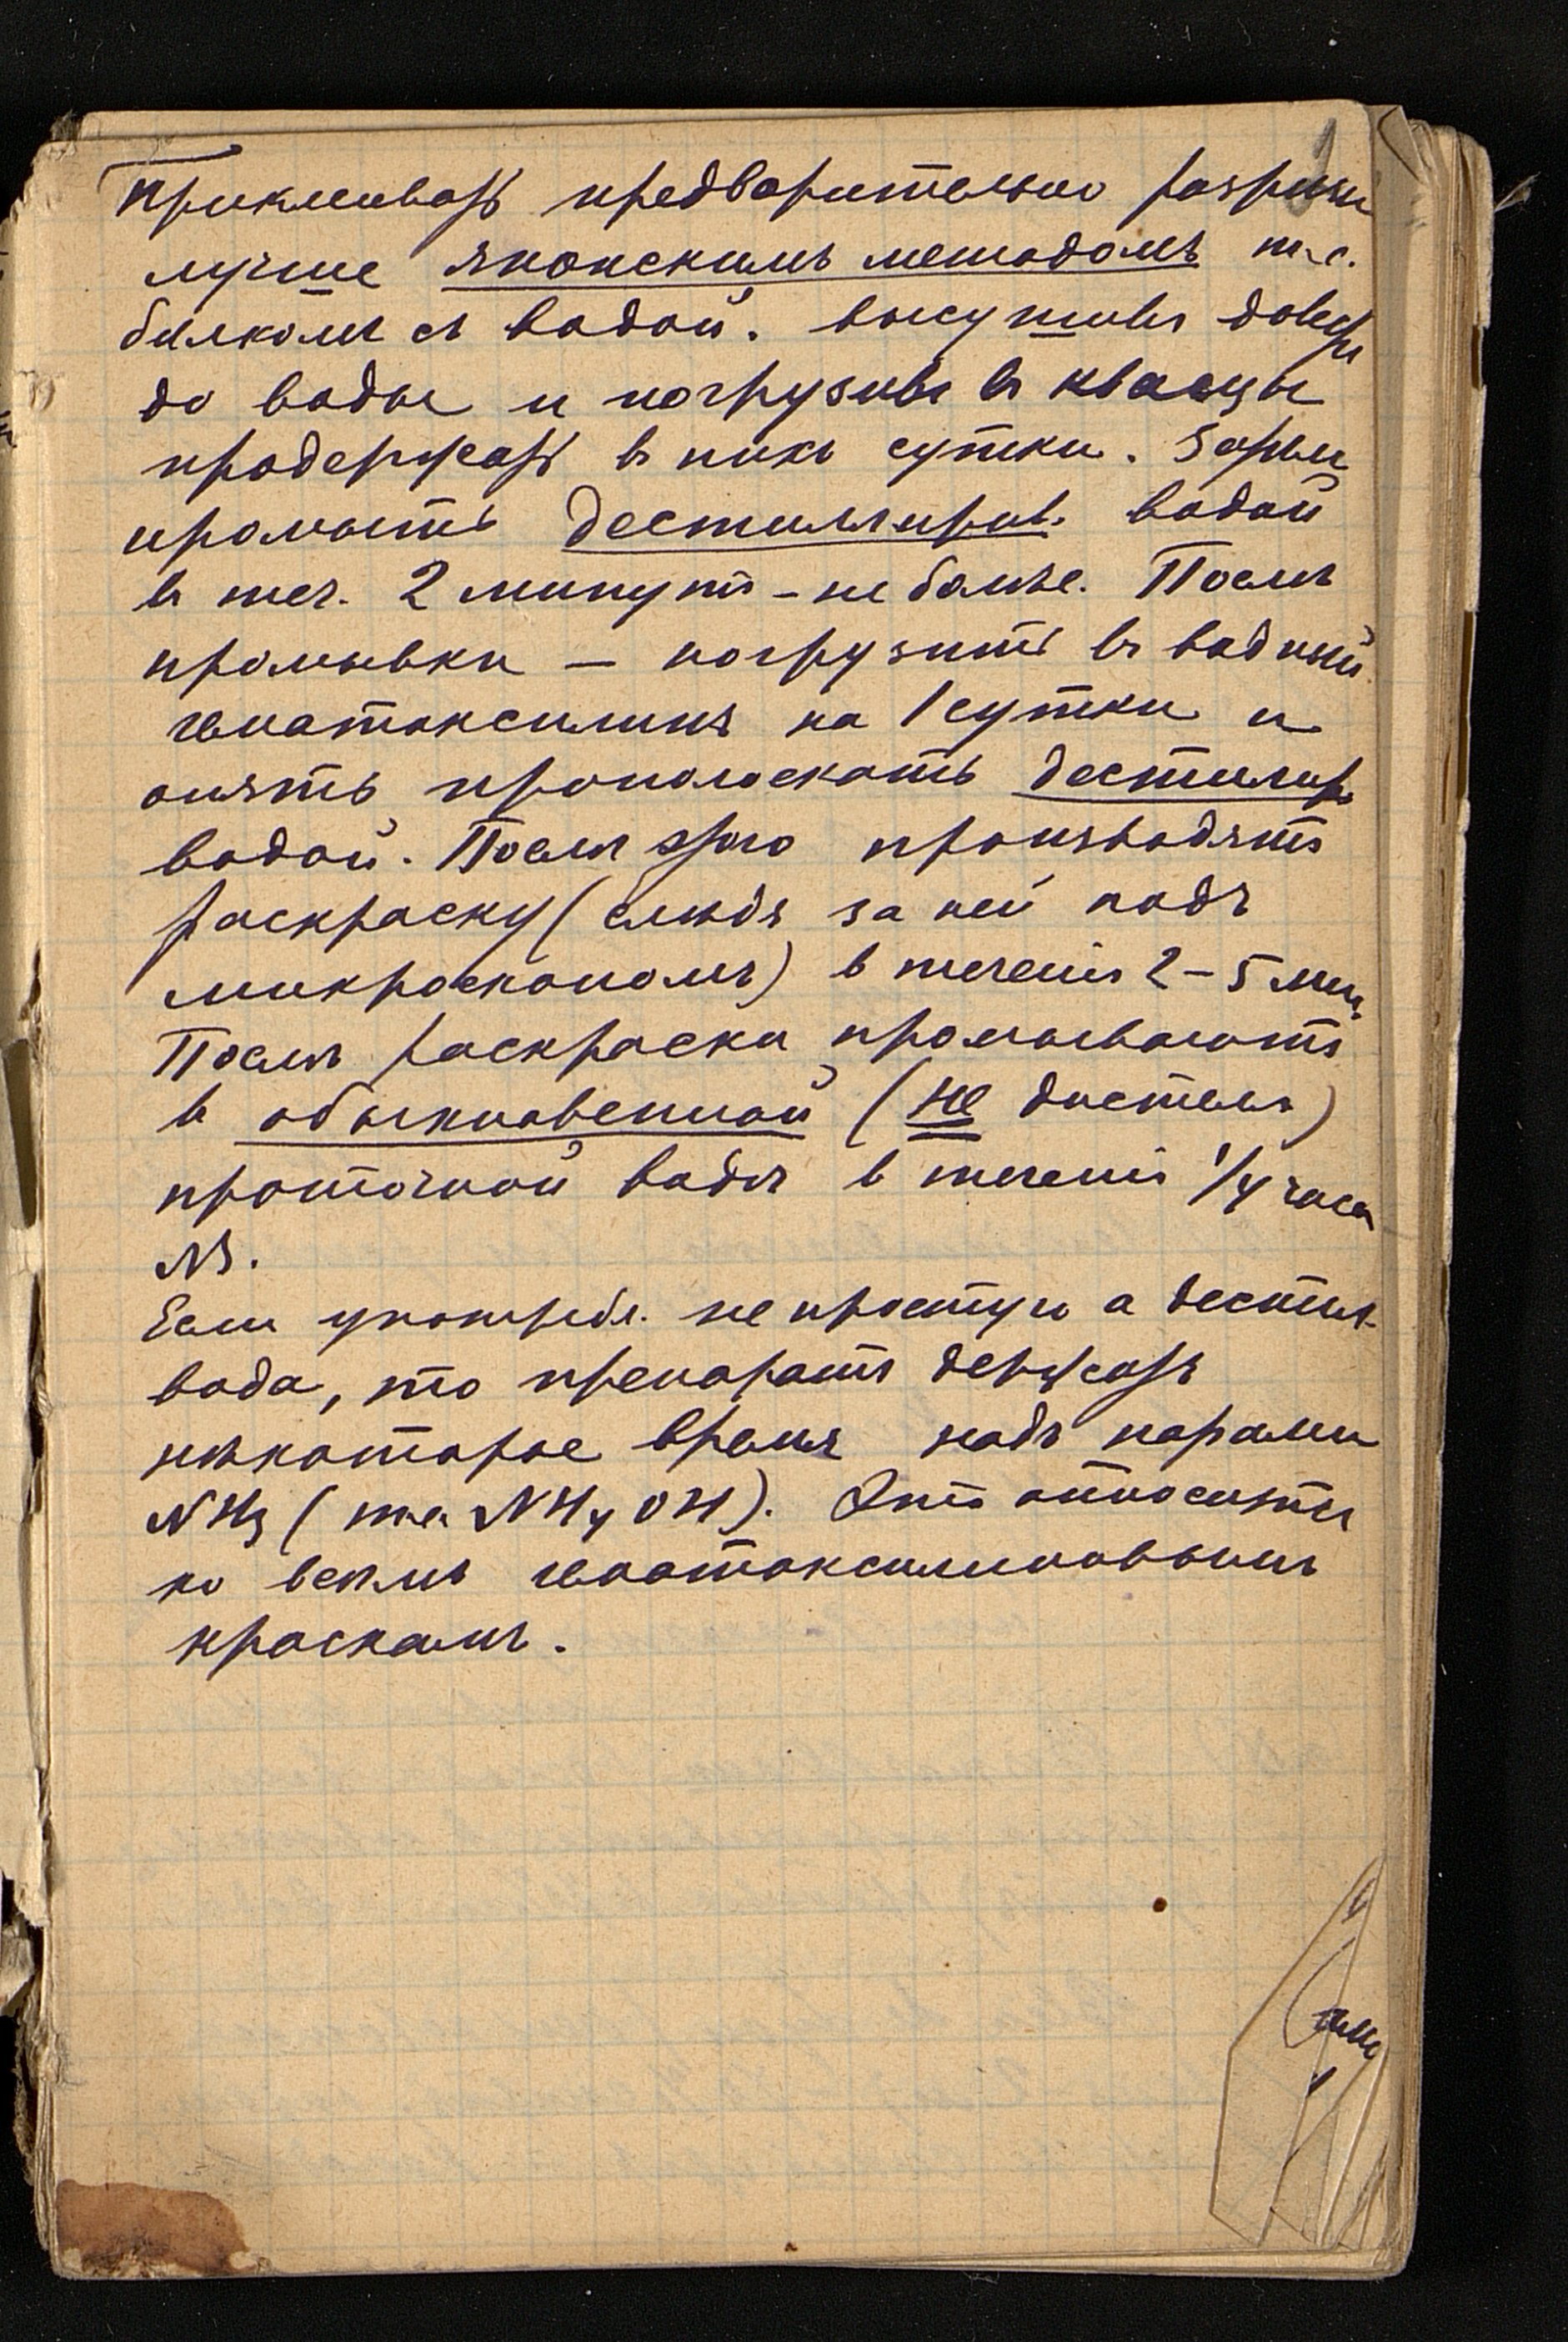 Приклеивать предварительно разрезы
лучше японскимъ методомъ т.е.
белкомъ съ водой. Высушивъ довести
до воды и погрузивъ въ квасцы
продержать въ нихъ сутки. Затѣмъ
промыть дестиллиров. водой
въ теч. 2 минутъ - не болѣе. Послѣ
промывки — погрузить въ водный
гематоксилинъ на 1 сутки и
опять прополоскать дестилир.
водой. Послѣ этого производятъ
раскраску (слѣдя за ней подъ
микроскопомъ) в теченіи 2-5 мин.
Послѣ раскраски промываютъ
в обыкновенной (не дистилл)
проточной водѣ в теченіи 1/4 часа
NB.
Если употребл. не простую а дестил.
вода, то препаратъ держатъ
нѣкоторое время надъ парами
NH3 (т.е. NH4OH). Это относится
ко всѣмъ гематоксилиновымъ
краскамъ.